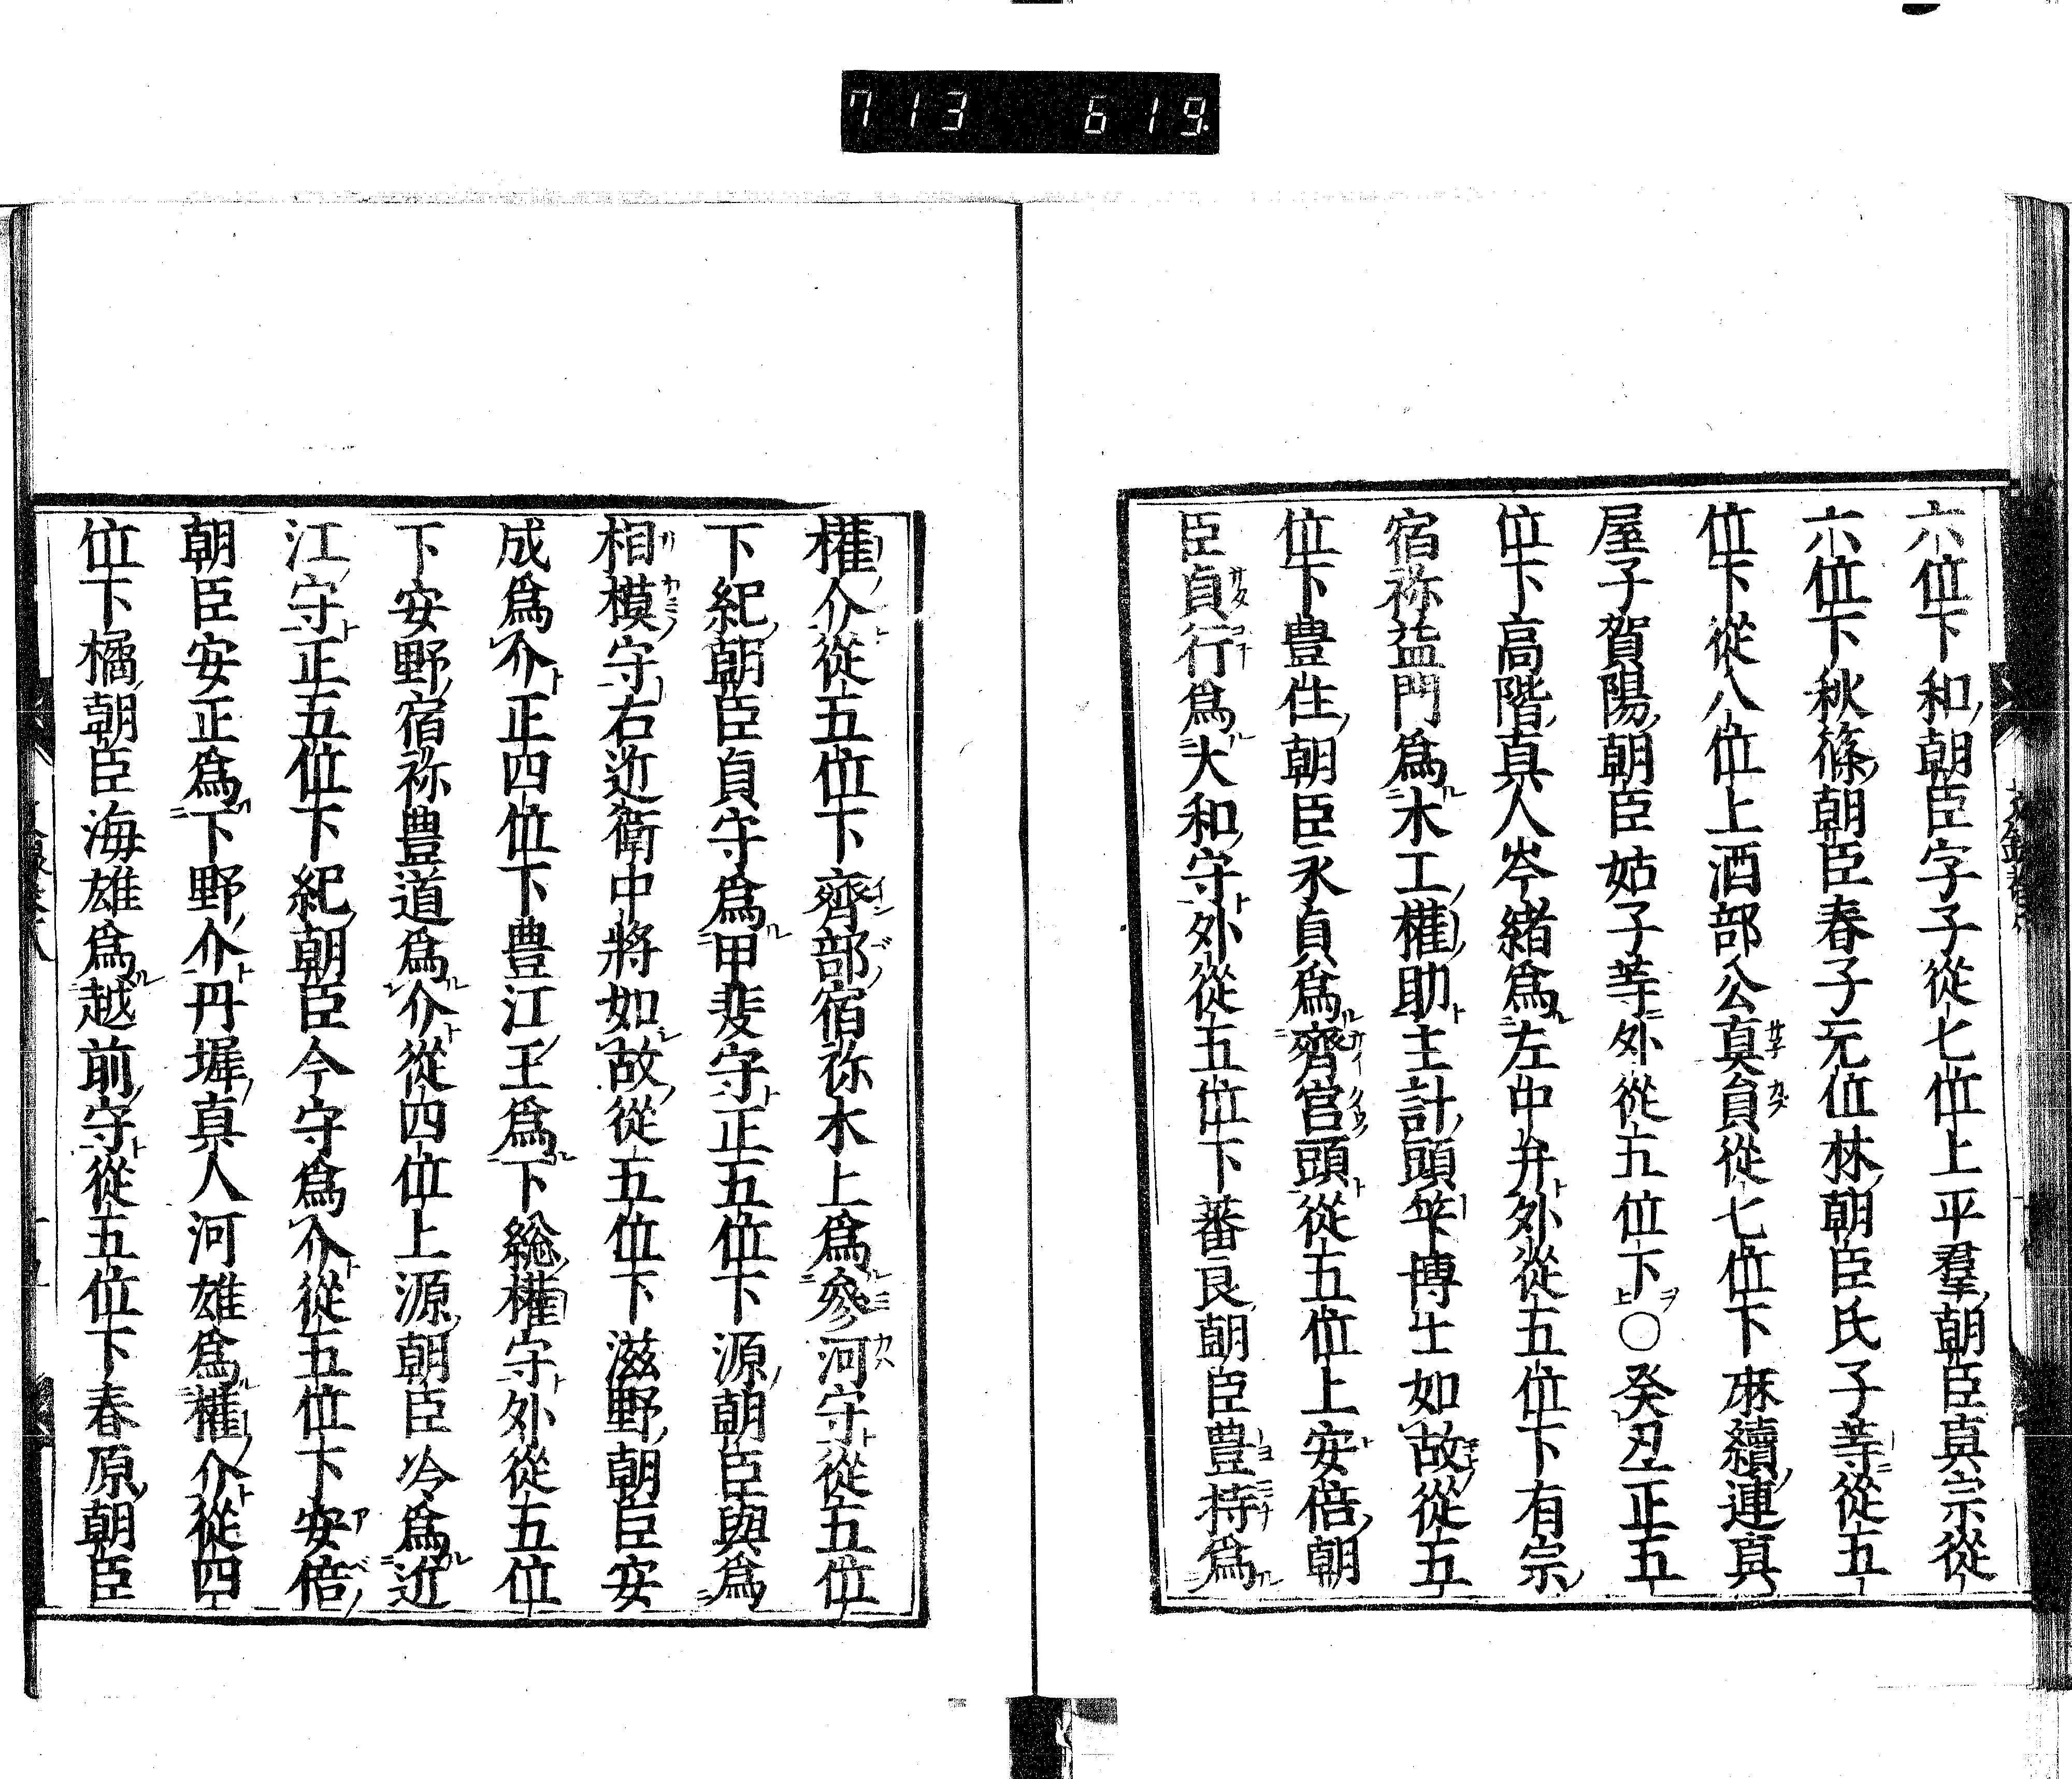 713 619
六位下和朝臣字子從七位上平羣朝臣真宗從
六位下秋篠朝臣春子无位林朝臣氏子等從五
位下從八位上酒部公真貟從七位下麻續連真
屋子賀陽朝臣姑子等外從五位下○癸丑正五
位下高階真人岑緒為左中弁外從五位下有宗
宿祢益門為木工權助主計頭竿博士如故從五
位下豊住朝臣永貞為齊宮頭從五位上安倍朝
臣貞行為大和守外從五位下蕃良朝臣豊持為
權介從五位下齊部宿祢木上為參河守從五位
下紀朝臣貞守為甲斐守正五位下源朝臣與為
相模守右近衛中將如故從五位下滋野朝臣安
成為介正四位下豊江王為下総權守外從五位
下安野宿祢豊道為介從四位上源朝臣冷為近
江守正五位下紀朝臣今守為介從五位下安倍
朝臣安正為下野介丹墀真人河雄為權介從四
位下橘朝臣海雄為越前守從五位下春原朝臣